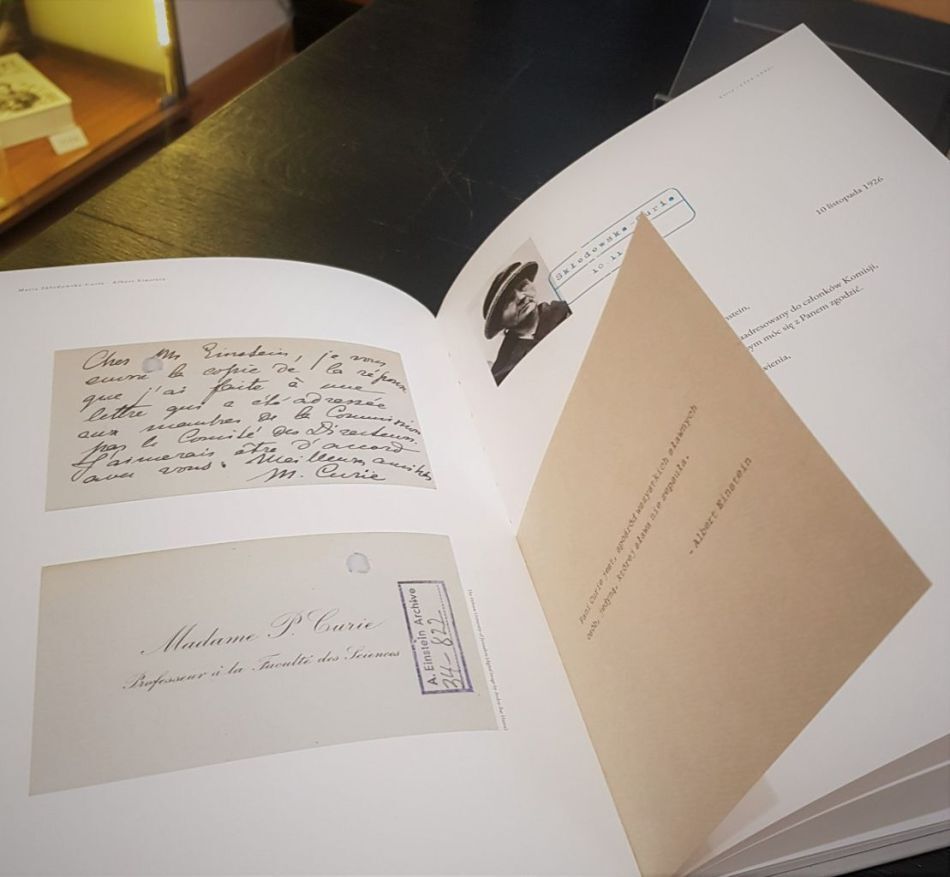 Maria Skłodowska-Curie - Albert Einstein
Cher Mr Einstein, je vous
envoie la copie de la réponse
que j'ai faite à une
lettre qui a été adressée
aux membres de la Commission
par le Comité des Directeurs.
J'aimerais être d'accord
avec vous. Meilleures amitiés
M. Curie
Madame P. Curie
Professeur à la Faculté des Sciences
A. Einstein Archive
34-822
Skłodowska-Curie
10 li
10 listopada 1926
nstein,
adresowany do członków Komisji,
ym móc się z Panem zgodzić.
wienia,
Pani Curie jest, spośród wszystkich sławnych
osób, jedyną, której sława nie zepsuła.
- Albert Einstein